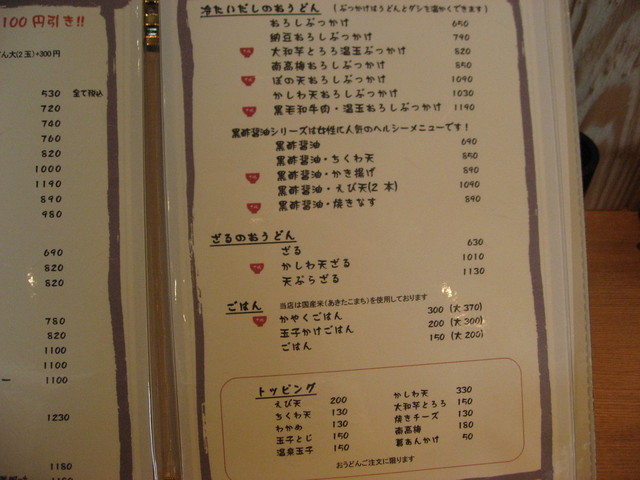 100円引き!!
ん大(2玉)+300円
530 全て税込
720
740
760
820
1000
1190
890
980
690
820
820
780
820
1100
1100
1100
1230
1180
冷たいだしのおうどん (ぶっかけはうどんとダシを温かくできます)
おろしぶっかけ 650
納豆おろしぶっかけ 740
大和芋とろろ温玉ぶっかけ 820
南高梅おろしぶっかけ 850
ぼの天おろしぶっかけ 1090
かしわ天おろしぶっかけ 1030
黒毛和牛肉・温玉おろしぶっかけ 1190
黒酢醤油シリーズは女性に人気のヘルシーメニューです!
黒酢醤油 690
黒酢醤油・ちくわ天 850
黒酢醤油・かき揚げ 890
黒酢醤油・えび天(2 本) 1090
黒酢醤油・焼きなす 890
ざるのおうどん
ざる 630
かしわ天ざる 1010
天ぷらざる 1130
ごはん 当店は国産米(あきたこまち)を使用しております
かやくごはん 300 (大 370)
玉子かけごはん 200 (大 300)
ごはん 150 (大 200)
トッピング
えび天 200
ちくわ天 130
わかめ 130
玉子とじ 150
温泉玉子 150
かしわ天 330
大和芋とろろ 150
焼きチーズ 130
南高梅 180
葛あんかけ 50
おうどんご注文に限ります